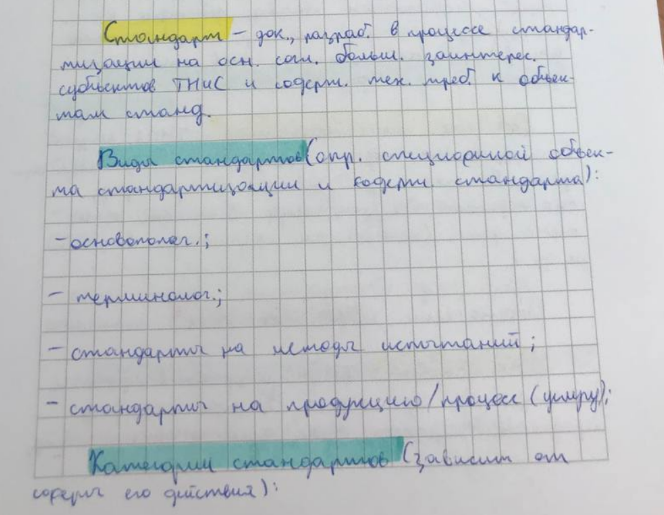 Стандарт – док., разраб. в процессе стандар-
тизации на осн. согл. больш. заинтерес.
субъектов ТНиС и содерж. тех. треб. к объек-
там станд.
Виды стандартов (опр. спецификой объек-
та стандартизации и содерж. стандарта):
– основополог.;
– терминолог.;
– стандарты на методы испытаний;
– стандарты на продукцию/процесс (услугу);
Категории стандартов (зависит от
сферы его действия):